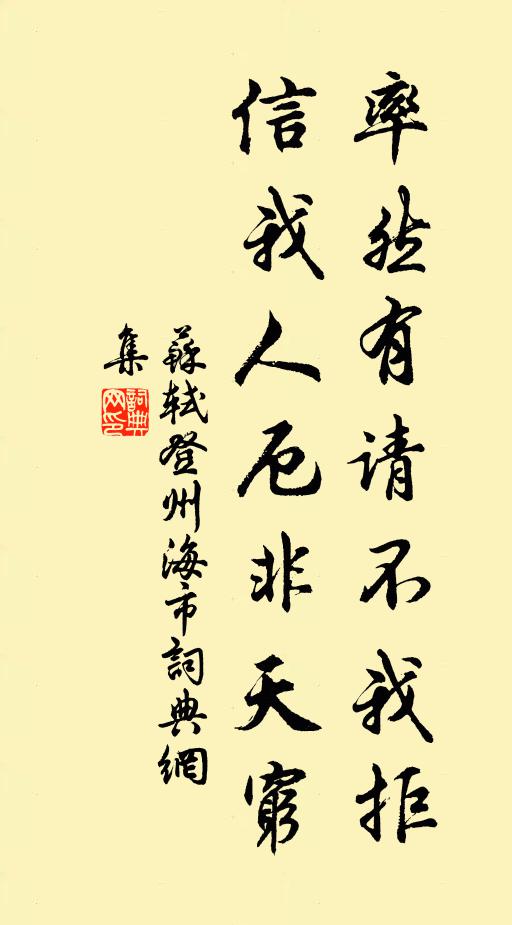 率然有请不我拒
信我人厄非天窮
蘇軾登州海市詞典網
集
詞典网印